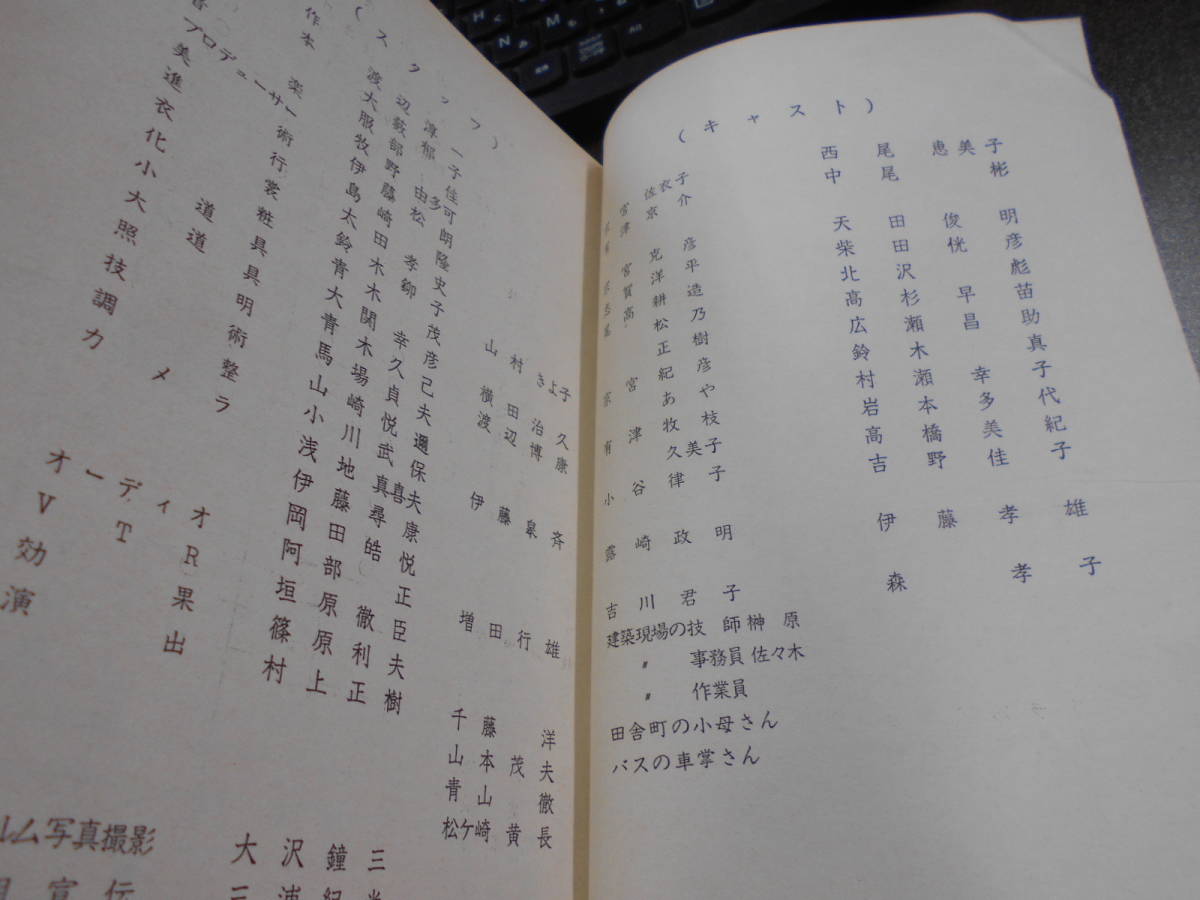 (スタッフ)
作
本
音楽
プロデューサー
美術
進行
衣裳
化粧
小道具
大道具
照明
技術
調整
カメラ
オーディオ
VTR
効果
演出
渡辺淳一
大薮郁子
服部佳
牧野由多可
伊藤松朗
島崎隆
太田孝史
鈴木鉚子
青木茂
大関幸彦
青木久己
馬場貞夫
山崎悦週
小川武保
浅地真喜夫
伊藤尋康
岡田皓悦
阿部正
垣原徹臣
篠原利夫
村上正樹
山村きよ子
横田治久
渡辺博康
伊藤皐斉
増田行雄
千藤洋
山本茂夫
青山徹
松ケ崎黄長
ルム写真撮影 大沢鐘三
宣伝
(キャスト)
宮津佐衣子 西尾恵美子
京介 中尾彬
克彦 天田俊明
宮洋平 柴田侊彦
志賀耕造 北沢彪
尾高松乃 高杉早苗
正樹 広瀬昌助
宗宮紀彦 鈴木真
あや 村瀬幸子
有津牧枝 岩本多代
久美子 高橋美紀
小谷律子 吉野佳子
露崎政明 伊藤孝雄
吉川君子 森孝子
建築現場の技師 榊原
〃 事務員 佐々木
〃 作業員
田舎町の小母さん
バスの車掌さん